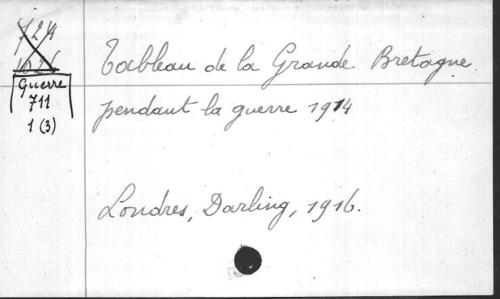 724
Guerre
711
1 (3)
Tableau de la Grande Bretagne
pendant la guerre 1914
Londres, Darling, 1916.